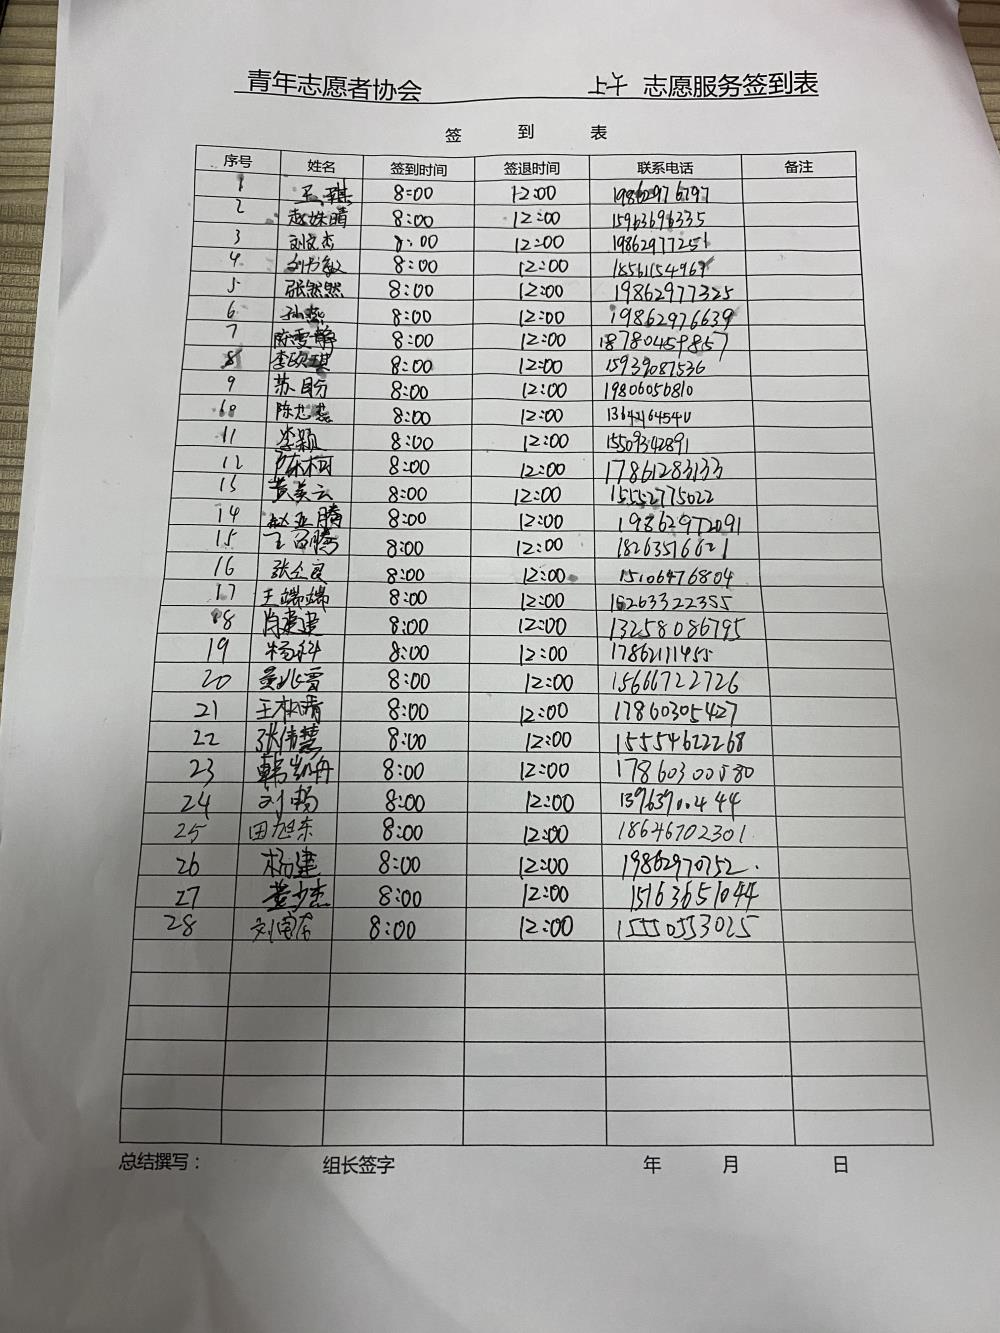 青年志愿者协会 上午 志愿服务签到表
签 到 表
序号 姓名 签到时间 签退时间 联系电话 备注
1 王琪 8:00 12:00 19862976797
2 赵姝晴 8:00 12:00 15963696335
3 刘文杰 8:00 12:00 19862977251
4 刘书敏 8:00 12:00 18561154967
5 张然然 8:00 12:00 19862977325
6 孙燕 8:00 12:00 19862976639
7 陈雪静 8:00 12:00 18780459857
8 李欣琪 8:00 12:00 15939087536
9 苏目芳 8:00 12:00 19806056810
10 8:00 12:00 13642164540
11 李颖 8:00 12:00 15509342891
12 陈柯 8:00 12:00 17861283133
13 黄美云 8:00 12:00 15552775022
14 赵亚腾 8:00 12:00 19862972091
15 8:00 12:00 18263516621
16 张全良 8:00 12:00 15106476804
17 王端端 8:00 12:00 15263322355
18 肖建建 8:00 12:00 13258086795
19 杨科 8:00 12:00 17862111455
20 吴兆雪 8:00 12:00 15666722726
21 王松晴 8:00 12:00 17860305427
22 张倩慧 8:00 12:00 15554622268
23 韩凯丹 8:00 12:00 17860300580
24 刘畅 8:00 12:00 13963900444
25 田旭东 8:00 12:00 18646702301
26 杨建 8:00 12:00 19862970752
27 黄少杰 8:00 12:00 15763651044
28 刘国浩 8:00 12:00 15550553025
总结撰写： 组长签字 年 月 日